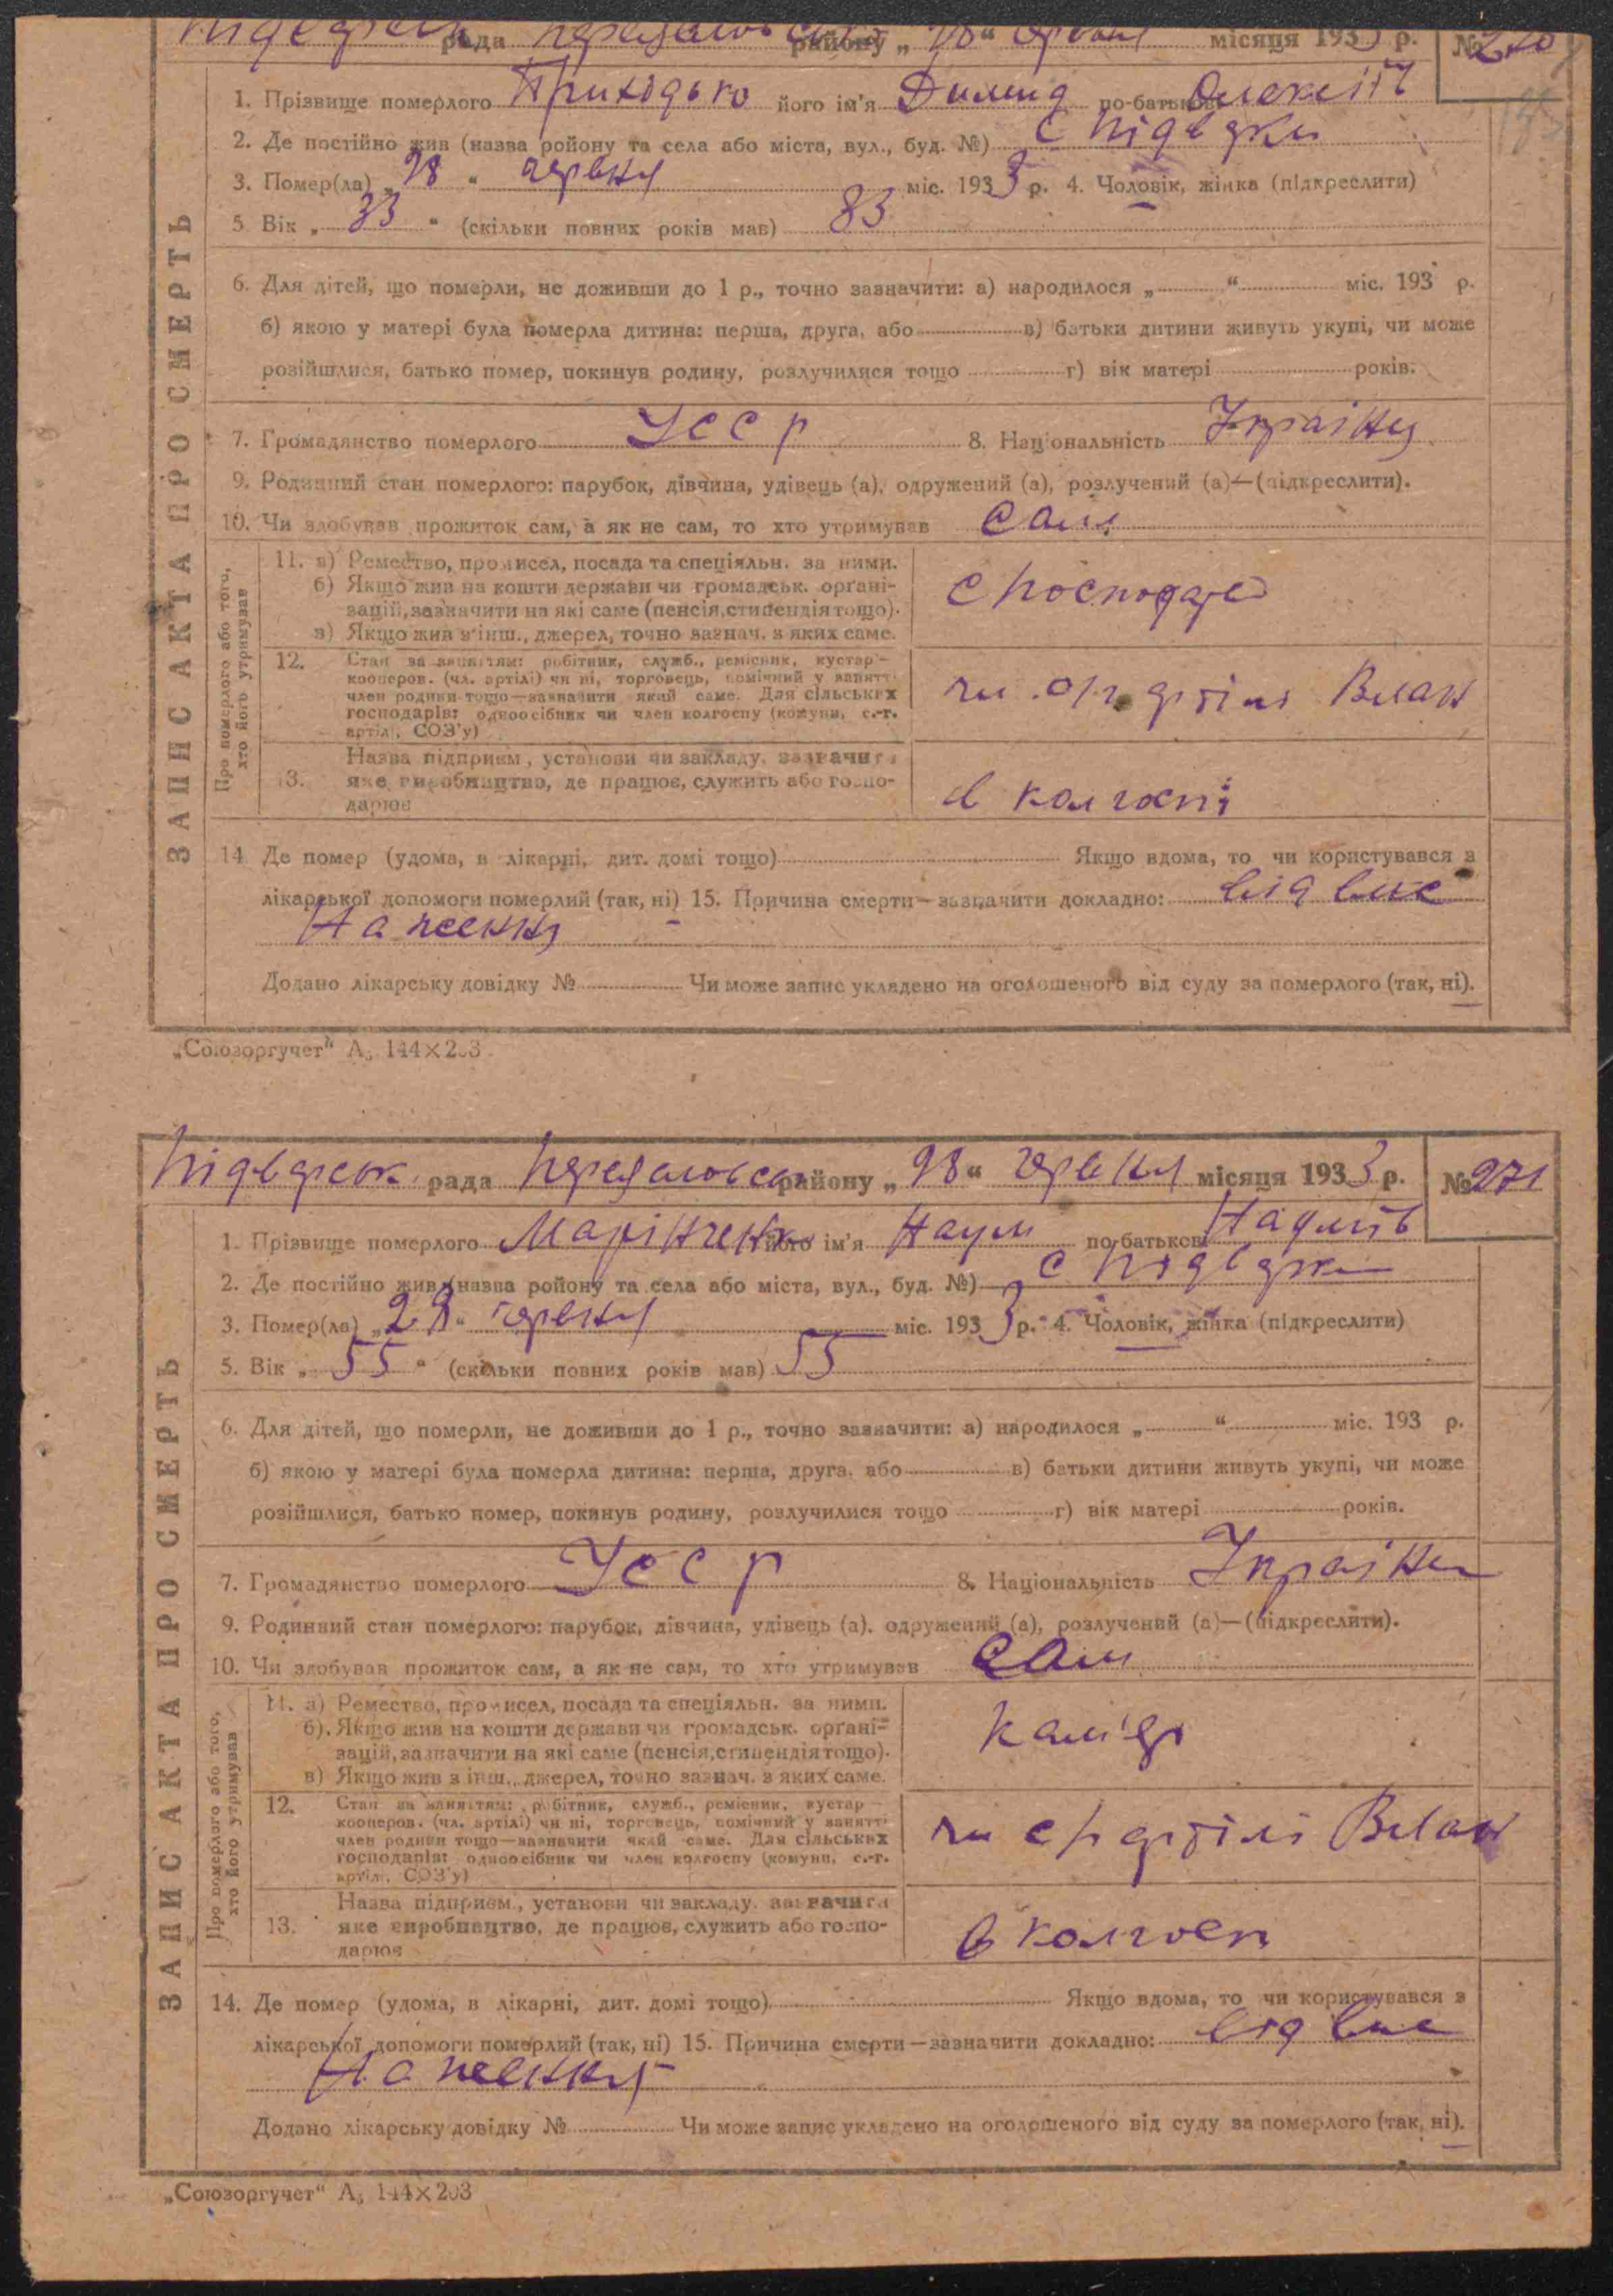 рада району „28“ червня місяця 1933 р. № 270
1. Прізвище померлого Приходько його ім'я Демид по-батькові
2. Де постійно жив (назва району та села або міста, вул., буд. №) с Підвдки
3. Помер(ла) „28“ червня міс. 1933 р. 4. Чоловік, жінка (підкреслити)
5. Вік „83“ (скільки повних років мав) 83
6. Для дітей, що померли, не доживши до 1 р., точно зазначити: а) народилося „ “ міс. 193 р.
б) якою у матері була померла дитина: перша, друга, або в) батьки дитини живуть укупі, чи може
розійшлися, батько помер, покинув родину, розлучилися тощо г) вік матері років.
7. Громадянство померлого УССР 8. Національність Украінец
9. Родинний стан померлого: парубок, дівчина, удівець (а), одружений (а), розлучений (а)—(підкреслити).
10. Чи здобував прожиток сам, а як не сам, то хто утримував сам
ЗАПИС АКТА ПРО СМЕРТЬ
Про померлого або того, хто його утримував
11. а) Ремество, промисел, посада та спеціяльн. за ними.
б) Якщо жив на кошти держави чи громадськ. органі-
зацій, зазначити на які саме (пенсія, стипендія тощо).
в) Якщо жив з інш., джерел, точно зазнач. з яких саме.
12. Стан за заняттям: робітник, служб., ремісник, кустар—
кооперов. (чл. артілі) чи ні, торговець, помічний у занятті
член родини тощо—зазначити який саме. Для сільських
господарів: одноосібник чи член колгоспу (комуни, с.-г.
артілі, СОЗ'у)
13. Назва підприєм., установи чи закладу, зазначити
яке виробництво, де працює, служить або госпо-
дарює
в колгоспі
14. Де помер (удома, в лікарні, дит. домі тощо) Якщо вдома, то чи користувався з
лікарської допомоги померлий (так, ні) 15. Причина смерти—зазначити докладно: від вис
наження
Додано лікарську довідку № Чи може запис укладено на оголошеного від суду за померлого (так, ні).
„Союзоргучет“ А₅ 144×203
Підвдськ. рада району „28“ червня місяця 1933 р. № 271
1. Прізвище померлого Марінченко його ім'я Наум по-батькові
2. Де постійно жив (назва району та села або міста, вул., буд. №) с Підвдки
3. Помер(ла) „28“ червня міс. 1933 р. 4. Чоловік, жінка (підкреслити)
5. Вік „55“ (скільки повних років мав) 55
6. Для дітей, що померли, не доживши до 1 р., точно зазначити: а) народилося „ “ міс. 193 р.
б) якою у матері була померла дитина: перша, друга, або в) батьки дитини живуть укупі, чи може
розійшлися, батько помер, покинув родину, розлучилися тощо г) вік матері років.
7. Громадянство померлого УССР 8. Національність Украінец
9. Родинний стан померлого: парубок, дівчина, удівець (а), одружений (а), розлучений (а)—(підкреслити).
10. Чи здобував прожиток сам, а як не сам, то хто утримував сам
ЗАПИС АКТА ПРО СМЕРТЬ
Про померлого або того, хто його утримував
11. а) Ремество, промисел, посада та спеціяльн. за ними.
б) Якщо жив на кошти держави чи громадськ. органі-
зацій, зазначити на які саме (пенсія, стипендія тощо).
в) Якщо жив з інш., джерел, точно зазнач. з яких саме.
12. Стан за заняттям: робітник, служб., ремісник, кустар—
кооперов. (чл. артілі) чи ні, торговець, помічний у занятті
член родини тощо—зазначити який саме. Для сільських
господарів: одноосібник чи член колгоспу (комуни, с.-г.
артілі, СОЗ'у)
13. Назва підприєм., установи чи закладу, зазначити
яке виробництво, де працює, служить або госпо-
дарює
в колгосп
14. Де помер (удома, в лікарні, дит. домі тощо) Якщо вдома, то чи користувався з
лікарської допомоги померлий (так, ні) 15. Причина смерти—зазначити докладно: від вис
наження
Додано лікарську довідку № Чи може запис укладено на оголошеного від суду за померлого (так, ні).
„Союзоргучет“ А₅ 144×203